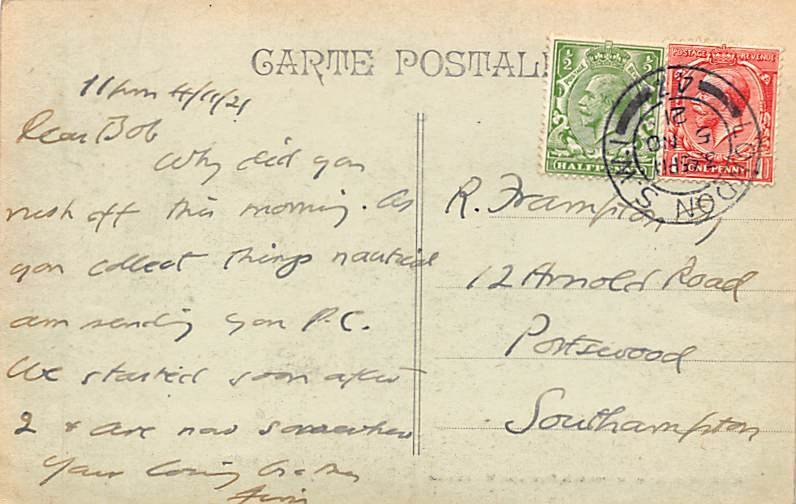 CARTE POSTALE
11pm 4/11/21
Dear Bob
Why did you
rush off this morning. As
you collect things nautical
am sending you P.C.
We started soon after
2 & are now somewhere
Your loving
R. Frampton
12 Arnold Road
Portswood
Southampton
½ ½
HALFPENNY
POSTAGE REVENUE
ONE PENNY
LONDON S.W.1
5 NO
21
47